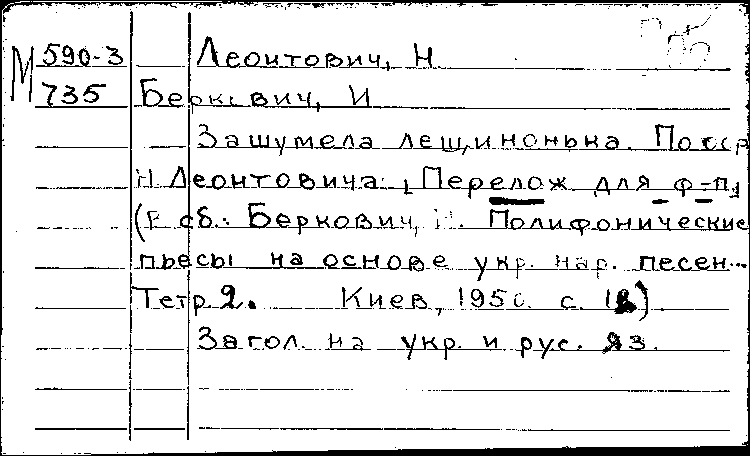 М 590-3 Леонтович, Н
735 Беркович, И
Зашумела лещинонька. По обр
Н Леонтовича. Перелож для ф-п.
(В сб.: Беркович, И. Полифонические
пьесы на основе укр. нар. песен...
Тетр 2. Киев, 1950. с.
Загол. на укр. и рус. яз.